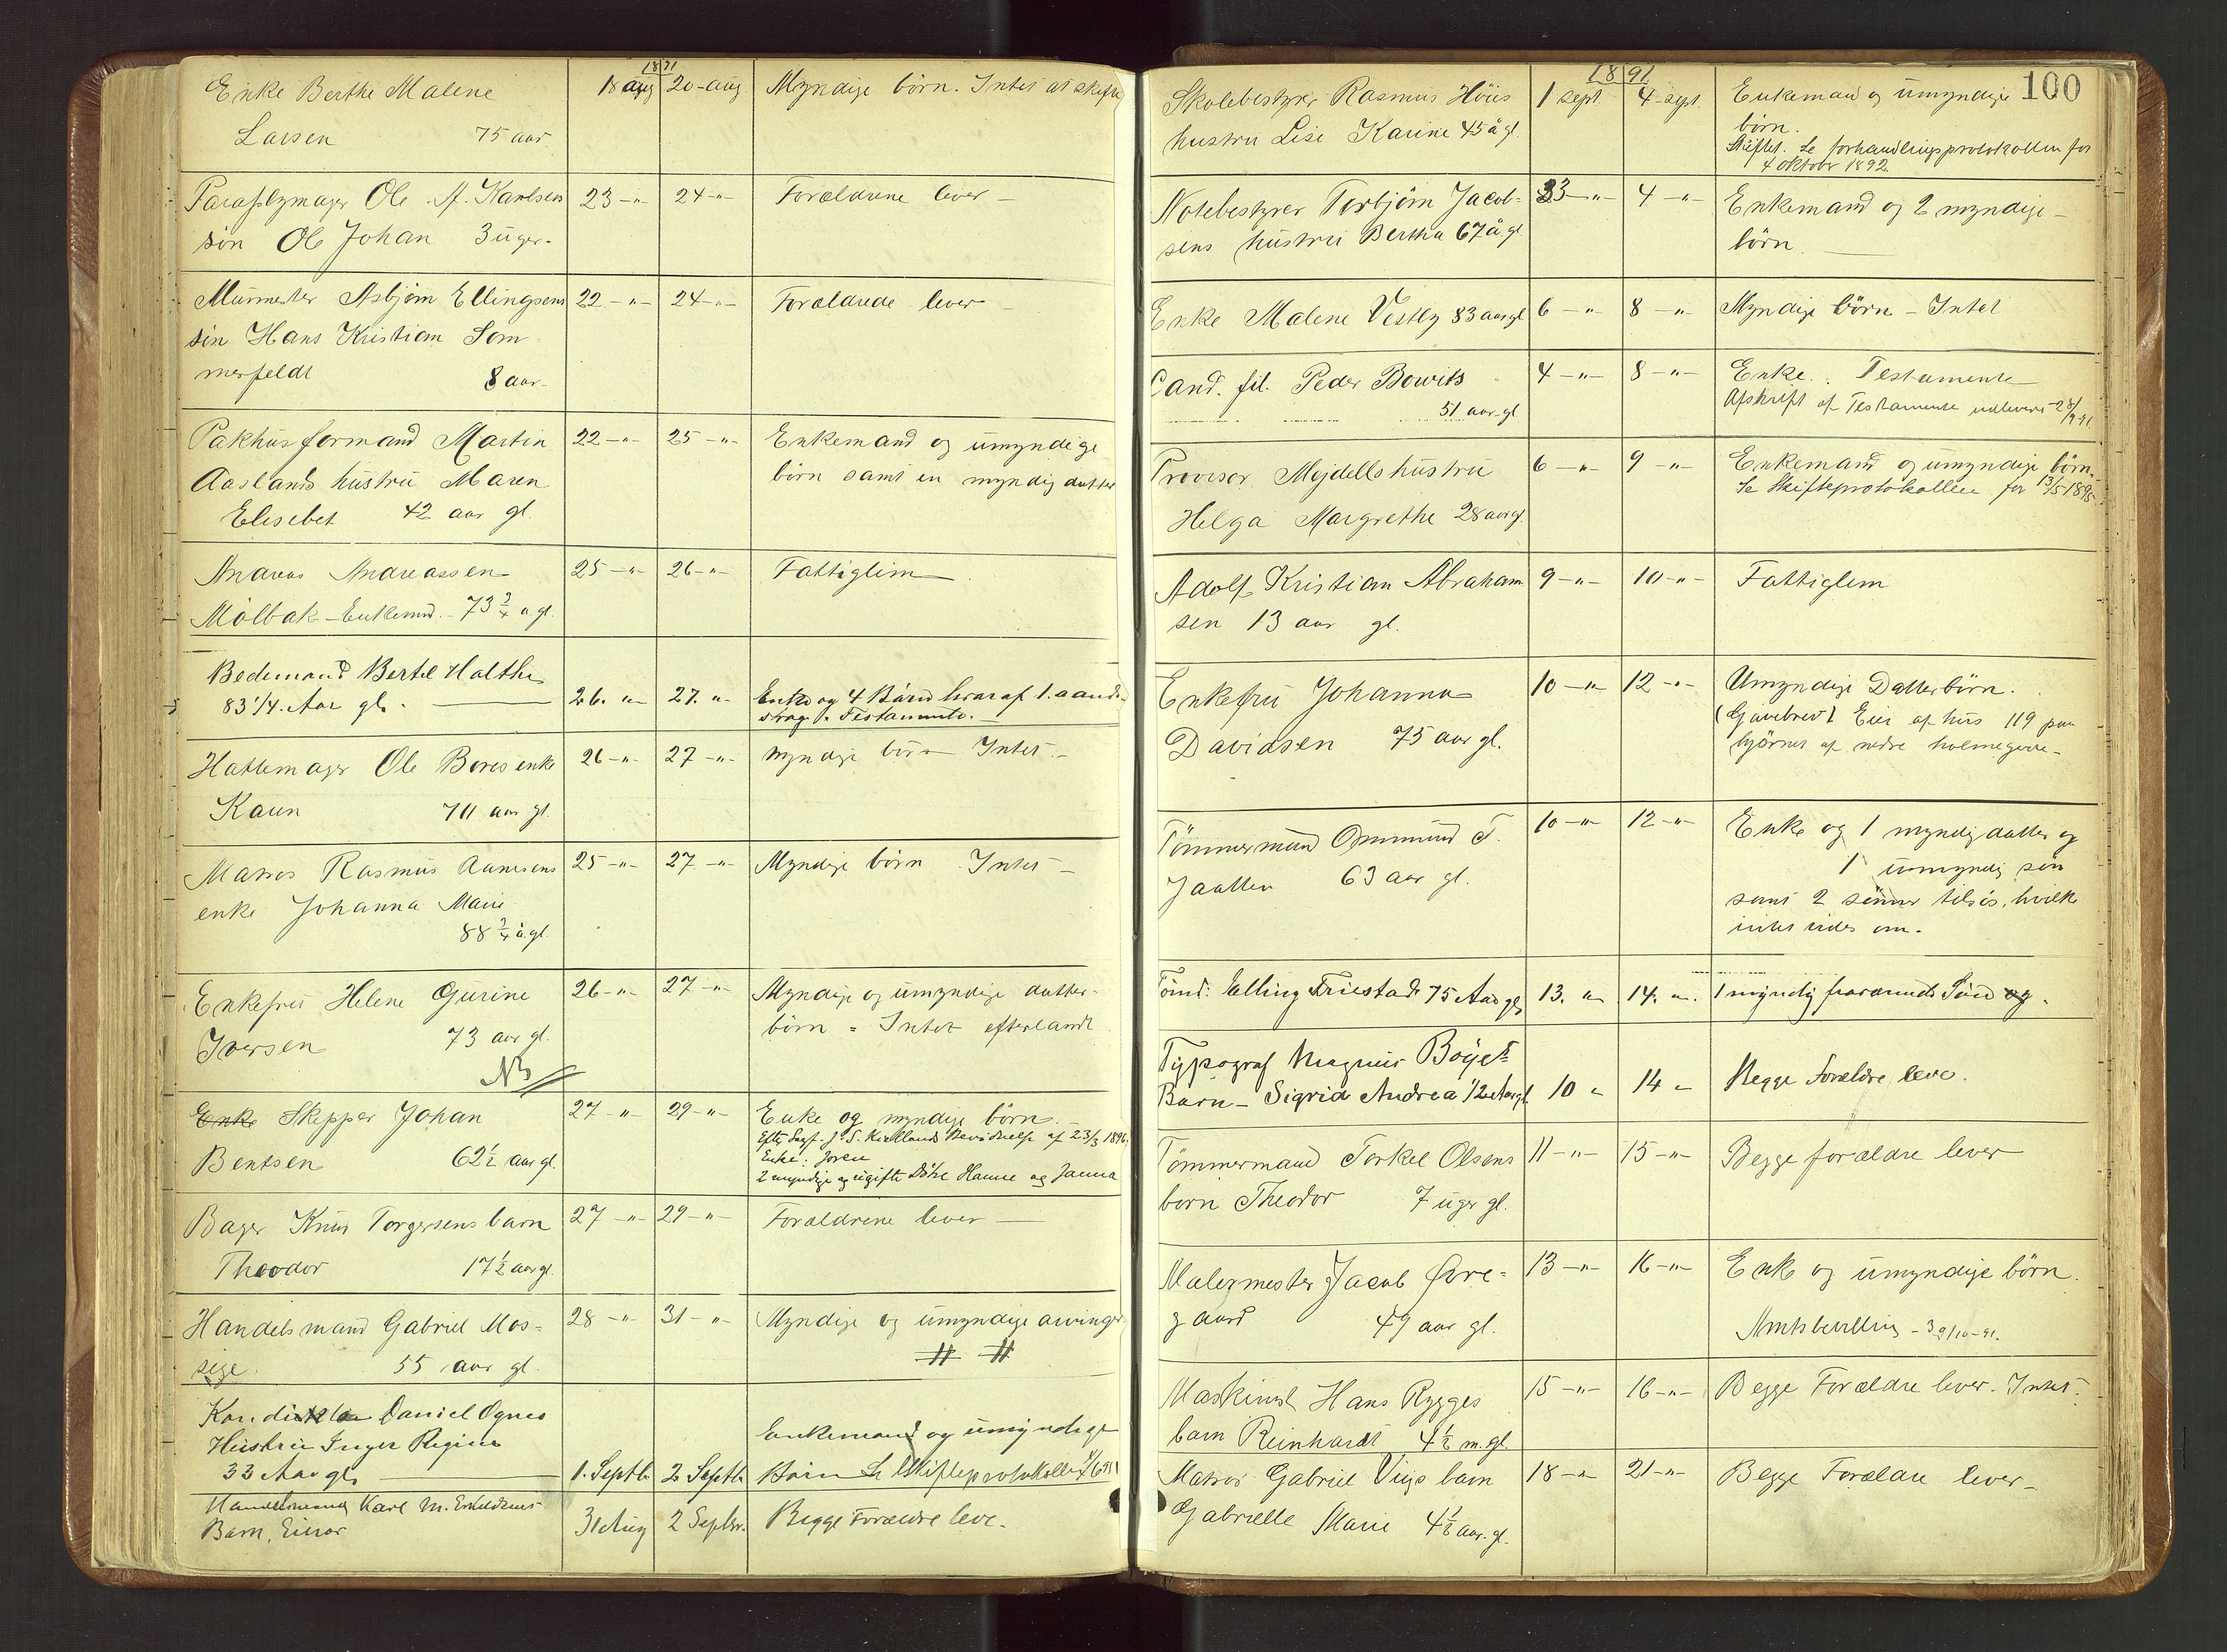 1891
Enke Berthe Malene 18 aug 20-aug Myndige børn. Intet at skifte
Larsen 75 aar.
Paraplymager Ole A. Karlsens 23-"- 24-"- Forældrene lever -
søn Ole Johan 3 uger-
Murmester Asbjørn Ellingsens 22-"- 24-"- Forældrede lever -
søn Hans Kristian Som
merfeldt 8 aar-
Pakhusformand Martin 22-"- 25-"- Enkemand og umyndige
Aaslands hustru Maren børn samt en myndig datter
Elisebet 42 aar gl
Andreas Andreassen 25-"- 26-"- Fattiglim
Mølbak - Enkemd. - 73 3/4 a gl.
Bedemand Bertel Halthe
83 1/4. Aar gl. 26. " 27. " Enke og 4 Børn hvoraf 1. aands-
svag. Testamente. -
Hattemager Ole Bores enke 26-"- 27-"- myndige børn Intet -
Karen 70 aar gl.
Matros Rasmus Aanesens 25-"- 27-"- Myndige børn Intet -
enke Johanna Marie
88 3/4 å.gl.
Enkefru Helene Gurine 26-"- 27-"- Myndige og umyndige datter-
Iversen 73 aar gl. børn = Intet efterladt
NB
Enke Skipper Johan 27-"- 29-"- Enke og myndige børn. -
Bentsen 62 1/2 aar gl. Efter Sagf. J. S. Kiellands Bevidnelse af 23/3 1896.
Enke: Joren
2 myndige og ugifte Døtre Hanne og Janna
Bager Knut Torgersens barn 27-"- 29-"- Forældrene lever -
Theodor 17 1/2 aar gl.
Handelsmand Gabriel Mos- 28-"- 31-"- Myndige og umyndige arvinger
sige. 55 aar gl. # #
Daniel Ognes
Hustru Inger Regine Enkemand og umyndige
33 Aar gl. 1. Septb. 2 Septb. Børn Se Skifteprotokollen
Handelsmand Karl M.
Barn, Einar 31 Aug 2 Septbr. Begge Forældre leve.
100
1891
Skolebestyrer Rasmus Höiis 1 sept. 4-sept. Enkemand og umyndige
hustru Lise Karine 45 å gl. børn.
Skiftet. Se forhandlingsprotokollen for
4 oktober 1892.
Notebestyrer Torbjørn Jacob- 3-"- 4-"- Enkemand og 2 myndige -
sens hustru Bertha 67 å. gl børn.
Enke Malene Vestly 83 aar gl 6-"- 8-"- Myndige børn - Intet
Cand. fil. Peder Bowitz 4-"- 8-"- Enke. . Testamente
51 aar gl Afskrift af Testamente udleveret 28/9 91
Provisor Mejdells hustru 6-"- 9-"- Enkemand og umyndige børn.
Helga Margrethe 28 aar gl. Se Skifteprotokollen for 13/5 1895
Adolf Kristian Abraham 9-"- 10-"- Fattiglem
sen 13 aar gl.
Enkefru Johanna 10-"- 12-"- Umyndige Datterbørn.
Davidsen 75 aar gl. (Gavebrev) Eier af hus 119 paa
hjørnet af nedre holmegade -
Tømmermand Ommund T. 10-"- 12-"- Enke og 1 myndig datter og
Jaatten 63 aar gl. 1 umyndig søn
samt 2 sønner tilsøs, hvilke
intet vides om.
Tømd. Elling Friestad 75 Aar gl. 13. " 14. ". 1 myndig fraværende Sønd og.
Typograf Magnus Bøyes
Barn - Sigrid Andrea 1/2 Aar gl. 10 " 14 " Begge Forældre leve.
Tømmermand Torkel Olsens 11-"- 15-"- Begge forældre lever
barn Theodor 7 uger gl.
Malermester Jacob Øvre- 13-"- 16-"- Enke og umyndige børn.
gaard 49 aar gl. Amtsbevilling - 3 9/10-91.
Maskinst Hans Rygges 15-"- 16-"- Begge Forældre lever. Intet.
barn Reinhardt 4 1/2 m. gl.
Matros Gabriel Vigs barn 18-"- 21-"- Begge Forældre lever -
Gabrielle Marie 4 1/2 aar. gl.